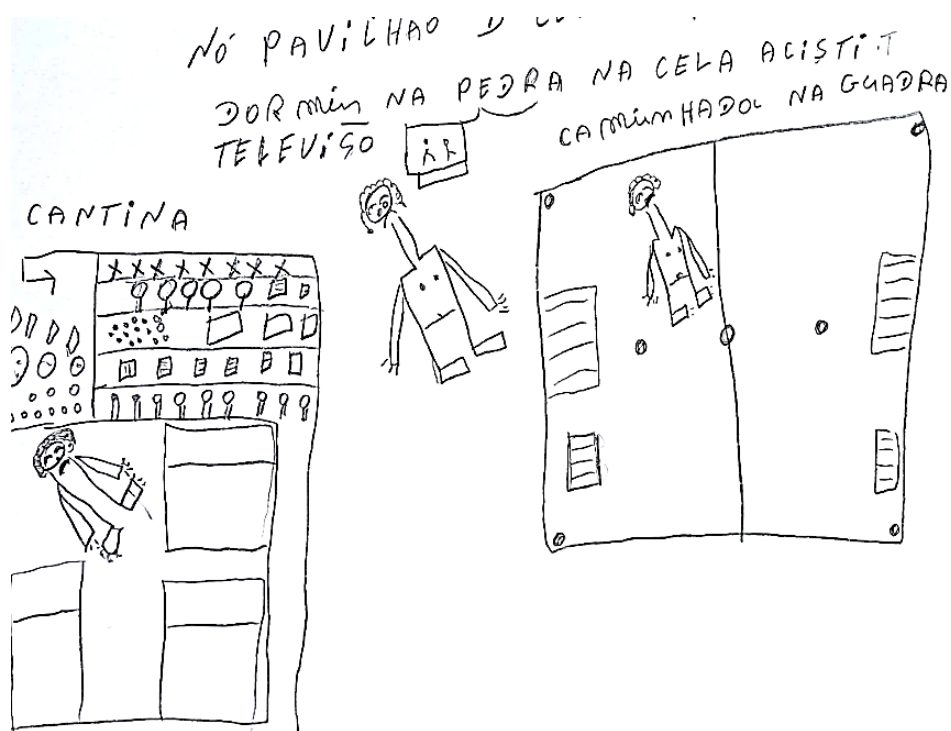 NÓ PAVILHAO D
DORMIN NA PEDRA NA CELA ACISTIT
TELEVISO
CAMINHADOL NA GUADRA
CANTINA